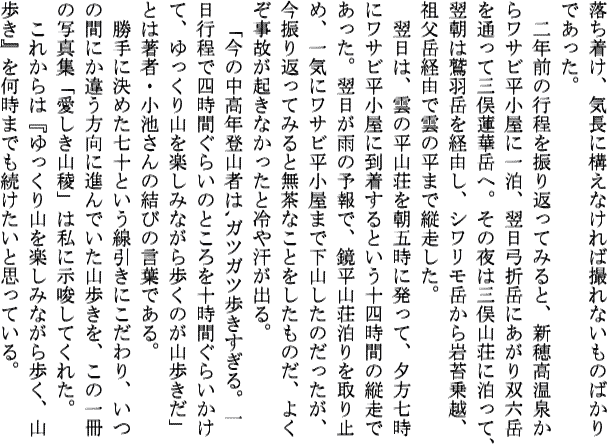 落ち着け、気長に構えなければ撮れないものばかり
であった。
　二年前の行程を振り返ってみると、新穂高温泉か
らワサビ平小屋に一泊、翌日弓折岳にあがり双六岳
を通って三俣蓮華岳へ。その夜は三俣山荘に泊って、
翌朝は鷲羽岳を経由し、シワリモ岳から岩苔乗越、
祖父岳経由で雲の平まで縦走した。
　翌日は、雲の平山荘を朝五時に発って、夕方七時
にワサビ平小屋に到着するという十四時間の縦走で
あった。翌日が雨の予報で、鏡平山荘泊りを取り止
め、一気にワサビ平小屋まで下山したのだったが、
今振り返ってみると無茶なことをしたものだ、よく
ぞ事故が起きなかったと冷や汗が出る。
　「今の中高年登山者は、ガツガツ歩きすぎる。一
日行程で四時間ぐらいのところを十時間ぐらいかけ
て、ゆっくり山を楽しみながら歩くのが山歩きだ」
とは著者・小池さんの結びの言葉である。
　勝手に決めた七十という線引きにこだわり、いつ
の間にか違う方向に進んでいた山歩きを、この一冊
の写真集「愛しき山稜」は私に示唆してくれた。
　これからは『ゆっくり山を楽しみながら歩く、山
歩き』を何時までも続けたいと思っている。